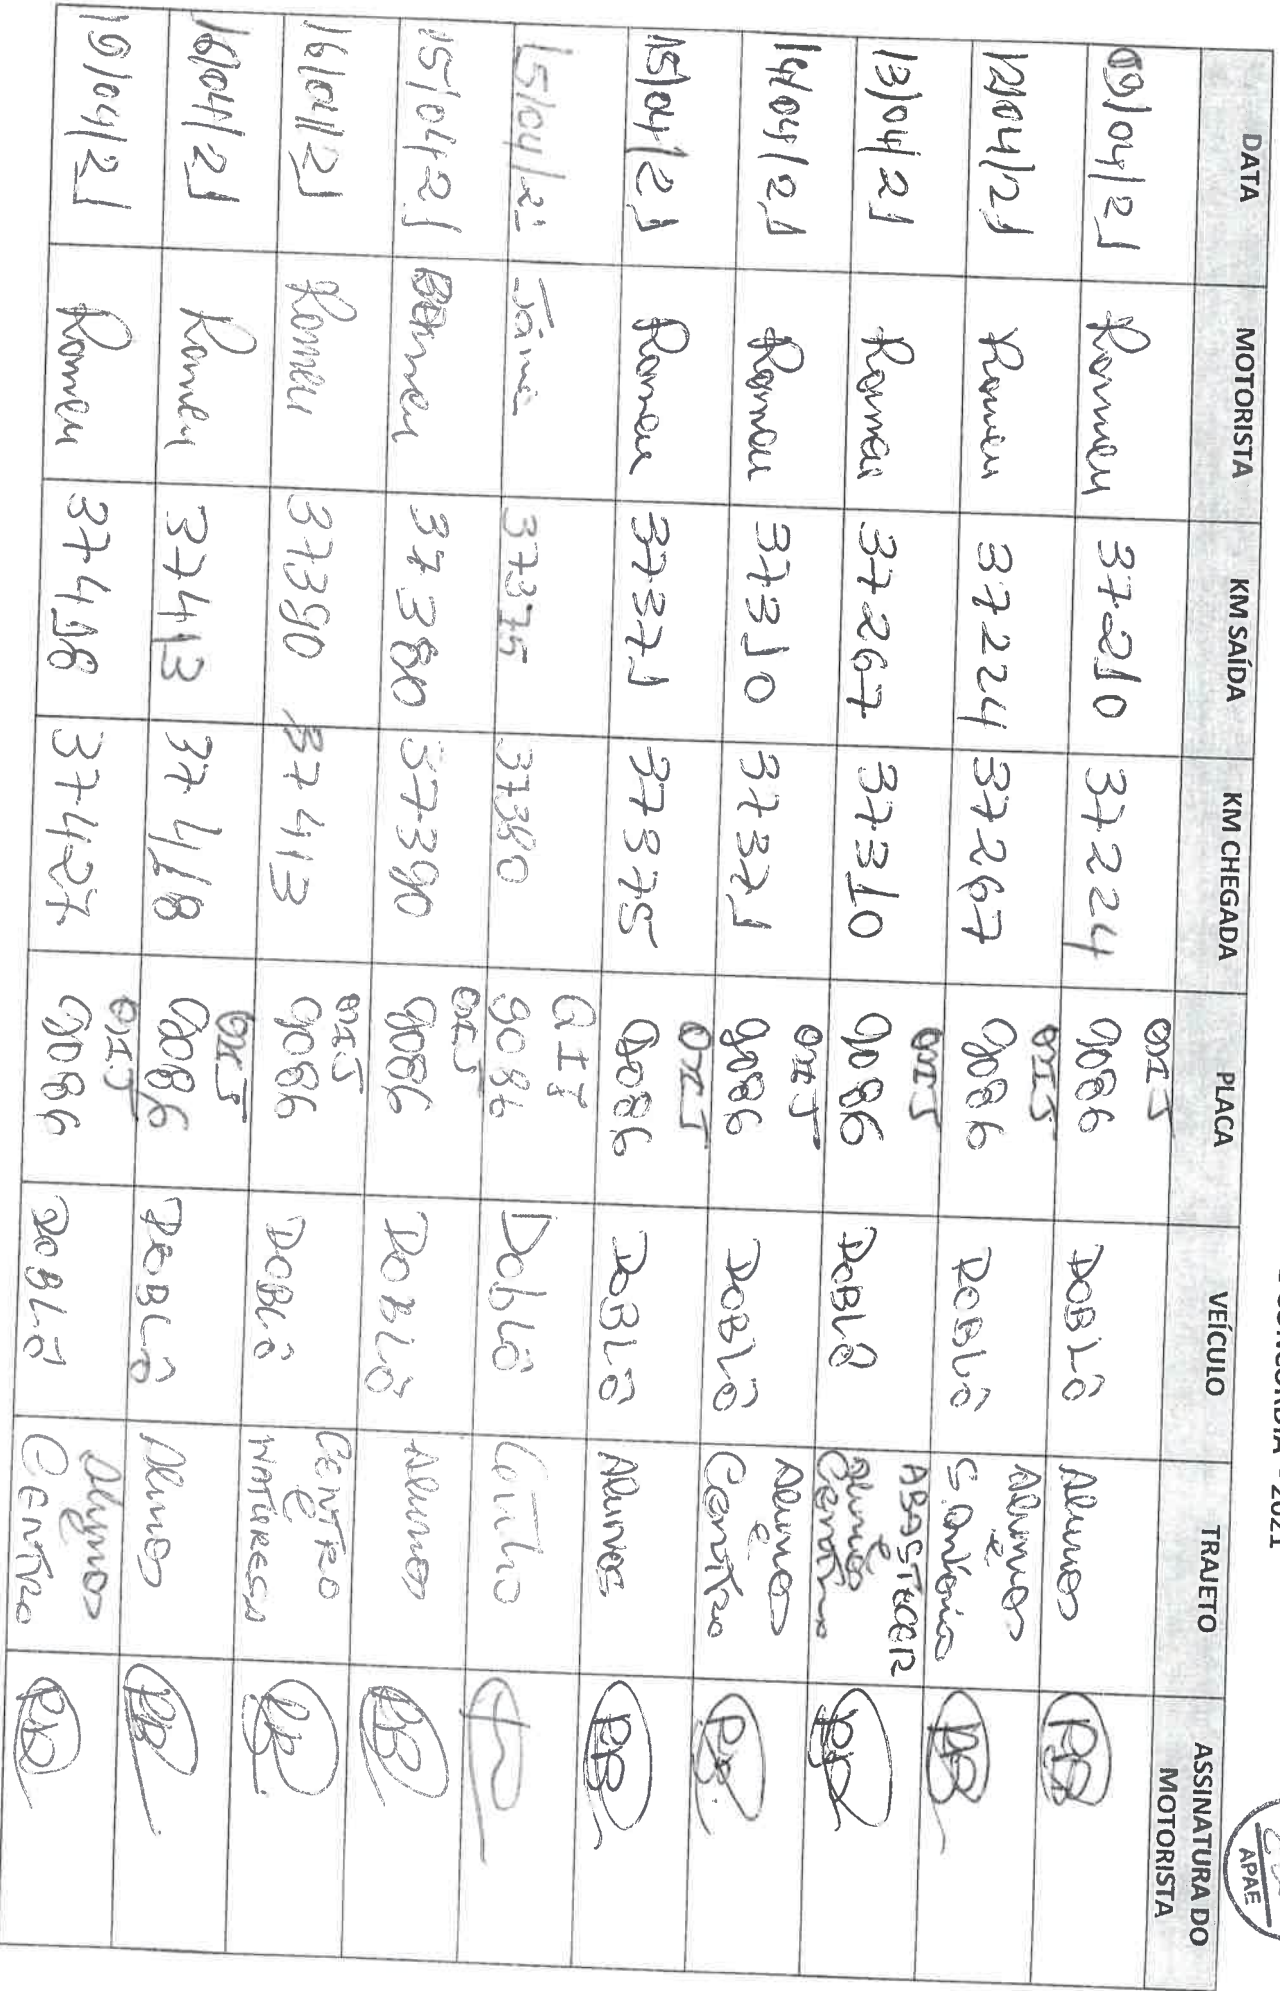 CONCÓRDIA - 2021
APAE
DATA MOTORISTA KM SAÍDA KM CHEGADA PLACA VEÍCULO TRAJETO ASSINATURA DO MOTORISTA
09/04/21 Romeu 37210 37224 9086 DOBLÔ Alunos
12/04/21 Romeu 37224 37267 9086 DOBLÔ Alunos e
13/04/21 Romeu 37267 37310 9086 DOBLÔ ABASTECER Alunos e Centro
14/04/21 Romeu 37310 37371 9086 DOBLÔ Alunos e Centro
15/04/21 Romeu 37371 37375 9086 DOBLÔ Alunos
15/04/21 37375 37380 9086 Doblô
15/04/21 Romeu 37380 37390 9086 DOBLÔ Alunos
16/04/21 Romeu 37390 37413 9086 DOBLÔ CENTRO e
16/04/21 Romeu 37413 37418 9086 DOBLÔ Alunos
19/04/21 Romeu 37418 37427 9086 DOBLÔ Alunos e CENTRO